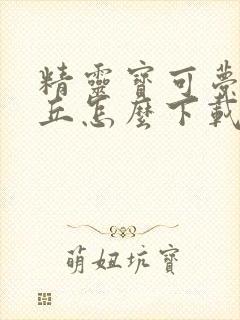 精靈寶可夢
丘怎麼下載
萌妞坑寶